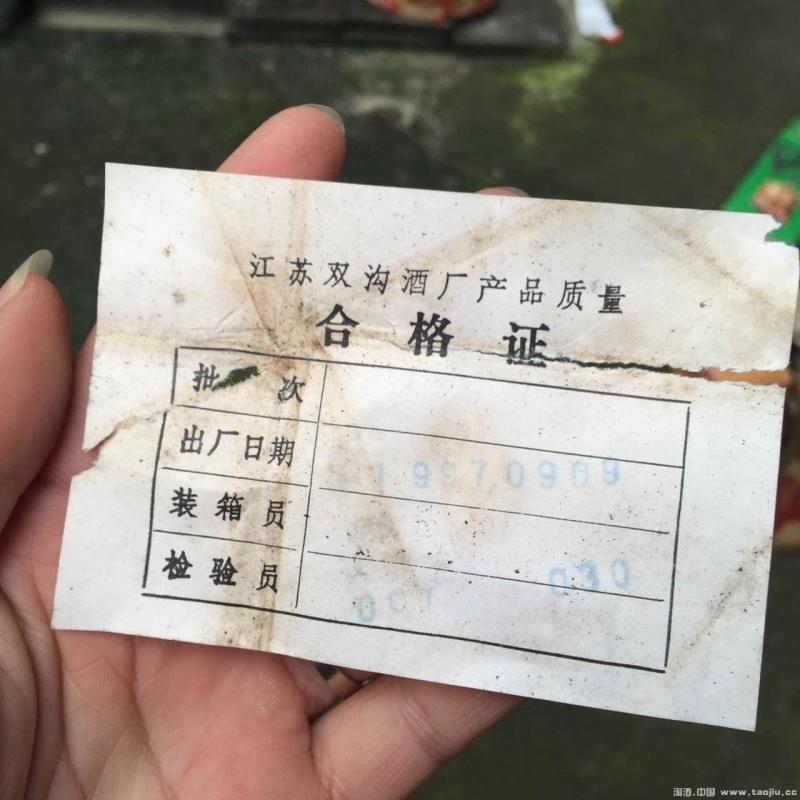 江苏双沟酒厂产品质量
合格证
批次
出厂日期 19970909
装箱员
检验员 OCT 030
淘酒.中国 www.taojiu.cc